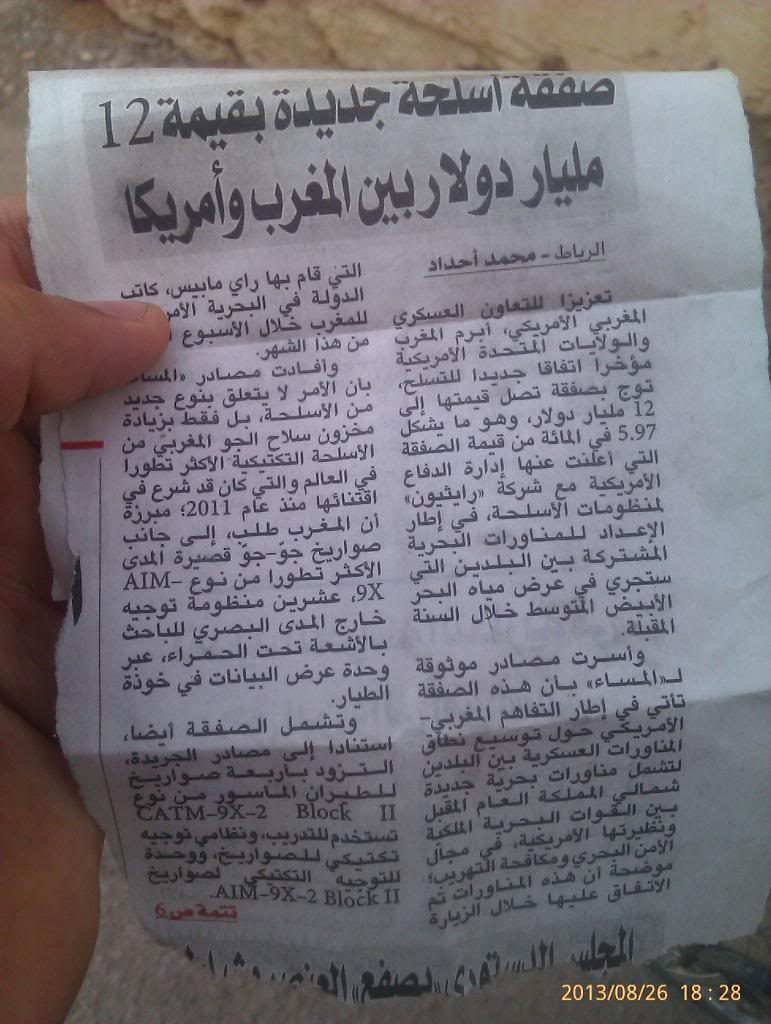 صفقة أسلحة جديدة بقيمة 12
مليار دولار بين المغرب وأمريكا
الرباط - محمد أحداد
تعزيزا للتعاون العسكري
المغربي الأمريكي، أبرم المغرب
والولايات المتحدة الأمريكية
مؤخرا اتفاقا جديدا للتسلح،
توج بصفقة تصل قيمتها إلى
12 مليار دولار، وهو ما يشكل
5.97 في المائة من قيمة الصفقة
التي أعلنت عنها إدارة الدفاع
الأمريكية مع شركة «رايثيون»
لمنظومات الأسلحة، في إطار
الإعداد للمناورات البحرية
المشتركة بين البلدين التي
ستجري في عرض مياه البحر
الأبيض المتوسط خلال السنة
المقبلة.
وأسرت مصادر موثوقة
لـ«المساء» بأن هذه الصفقة
تأتي في إطار التفاهم المغربي-
الأمريكي حول توسيع نطاق
المناورات العسكرية بين البلدين
لتشمل مناورات بحرية جديدة
شمالي المملكة العام المقبل
بين القوات البحرية الملكية
ونظيرتها الأمريكية، في مجال
الأمن البحري ومكافحة التهريب؛
موضحة أن هذه المناورات تم
الاتفاق عليها خلال الزيارة
التي قام بها راي مابيس، كاتب
الدولة في البحرية
للمغرب خلال الأسبوع
من هذا الشهر.
وأفادت مصادر «المساء
بأن الأمر لا يتعلق بنوع جديد
من الأسلحة، بل فقط بزيادة
مخزون سلاح الجو المغربي من
الأسلحة التكتيكية الأكثر تطورا
في العالم والتي كان قد شرع في
اقتنائها منذ عام 2011؛ مبرزة
أن المغرب طلب، إلى جانب
صواريخ جوّ-جوّ قصيرة المدى
الأكثر تطورا من نوع AIM-
9X، عشرين منظومة توجيه
خارج المدى البصري للباحث
بالأشعة تحت الحمراء، عبر
وحدة عرض البيانات في خوذة
الطيار.
وتشمل الصفقة أيضا،
استنادا إلى مصادر الجريدة،
التزود بأربعة صواريخ
للطيران المأسور من نوع
CATM-9X-2 Block II
تستخدم للتدريب، ونظامي توجيه
تكتيكي للصواريخ، ووحدة
للتوجيه التكتيكي لصواريخ
AIM-9X-2 Block II.
تتمة ص 6
المجلس الدستوري يصفع العنصر
2013/08/26 18:28